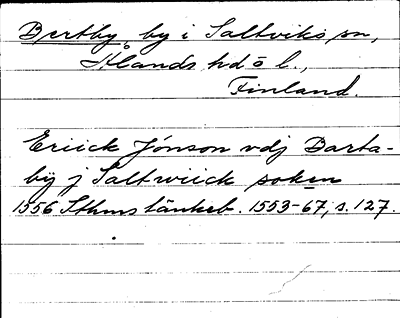 Bertby, by i Saltviks sn,
Ålands hd o l.,
Finland.
Eriick Jónson vdj Barta-
bÿ j Saltwiick soken
1556 Sthms tänkeb. 1553-67, s. 127.